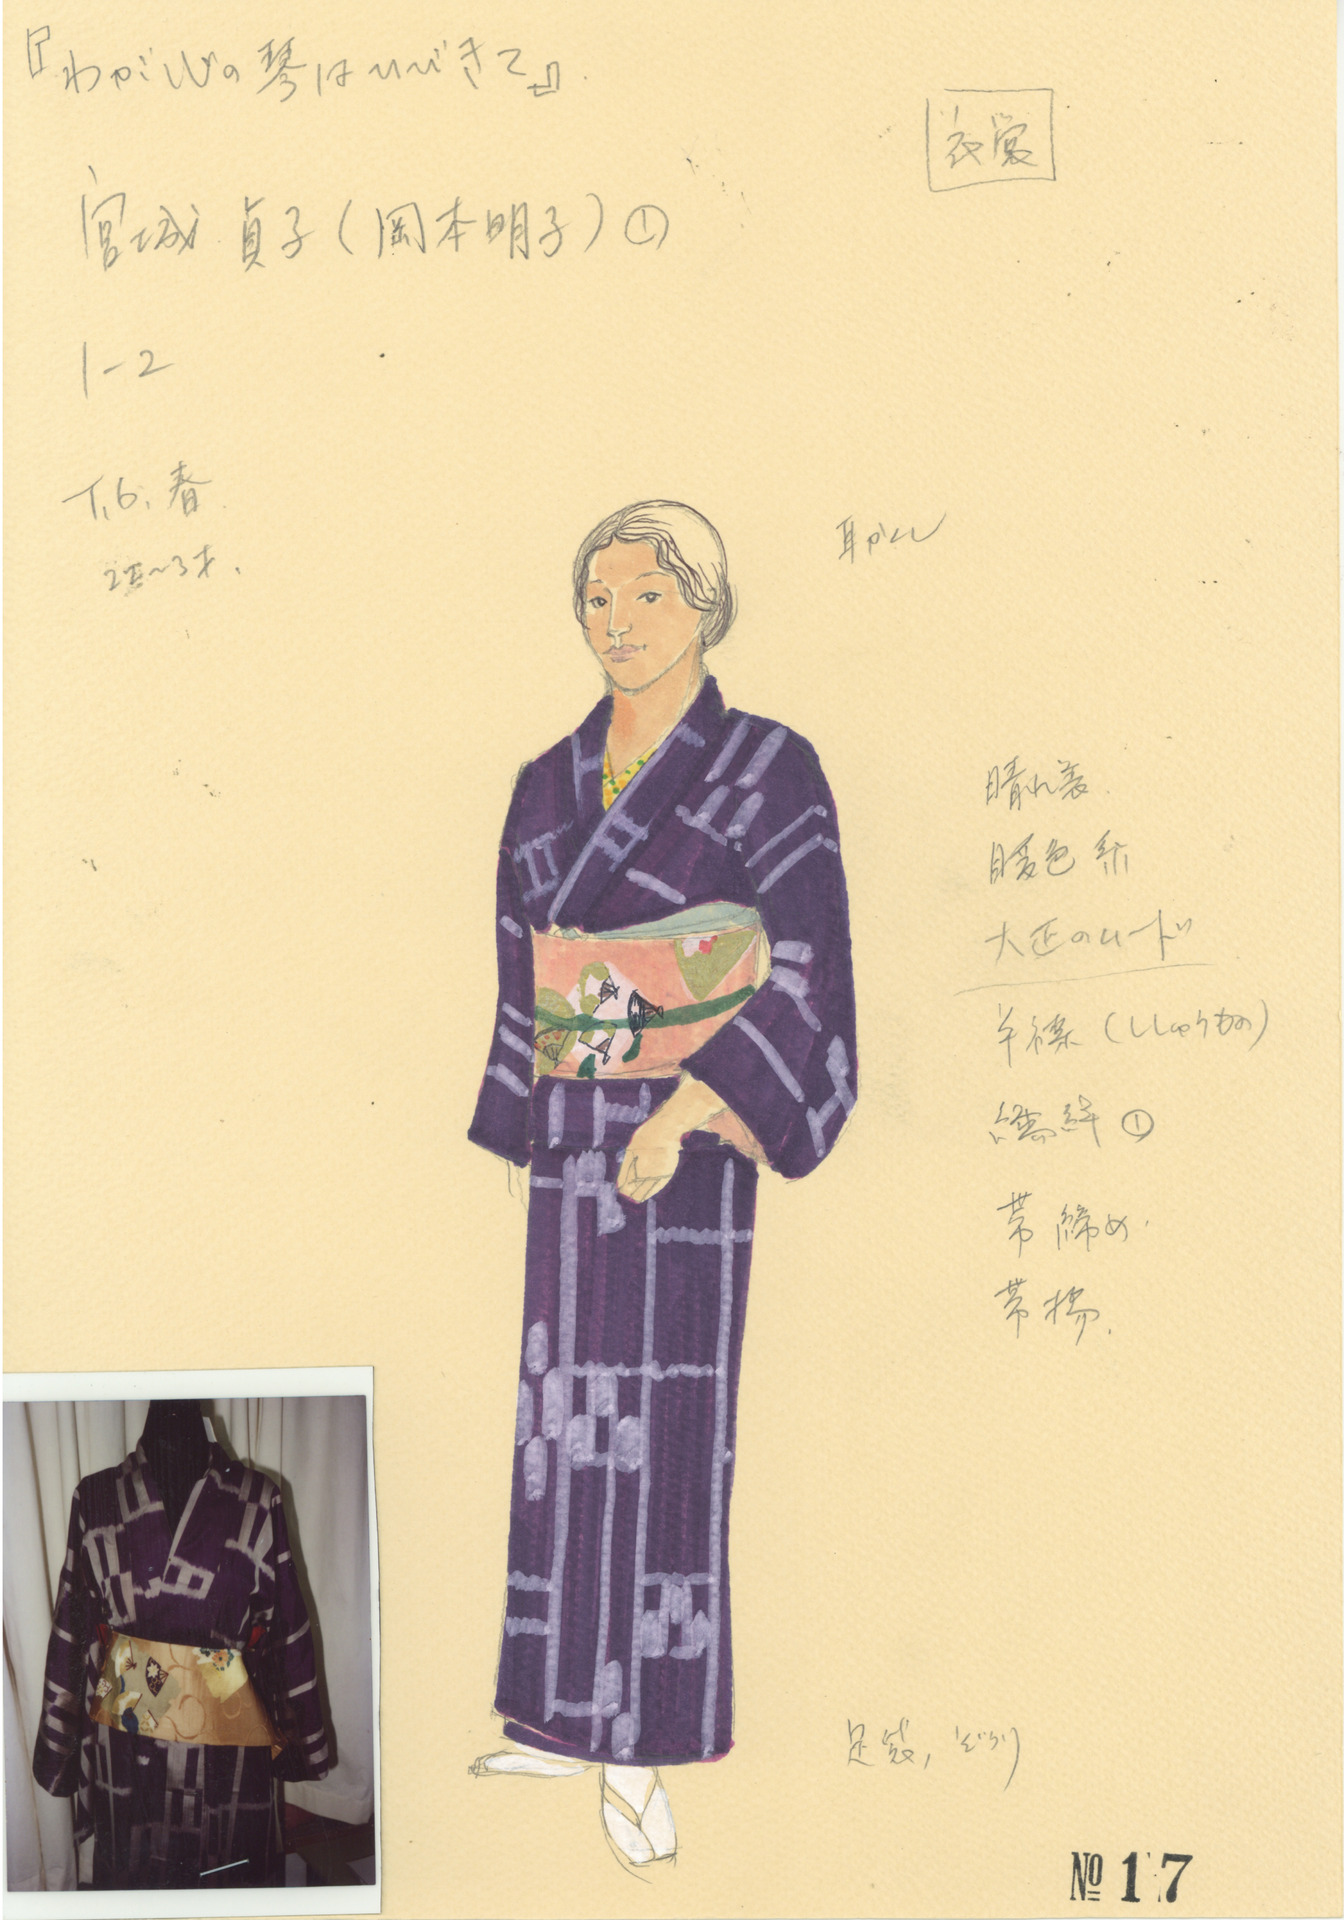 『わが心の琴はひびきて』
衣裳
宮城 貞子(岡本明子)①
1-2
T.6. 春
2〜3才.
耳かくし
晴れ着
暖色系
大正のムード
半襟(ししゅうもの)
縞絣①
帯締め
帯揚
足袋, ぞうり
No 17